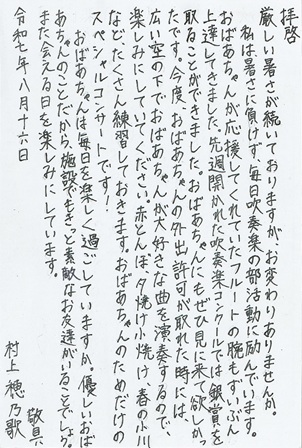 拝啓
厳しい暑さが続いておりますが、お変わりありませんか。
私は暑さに負けず、毎日吹奏楽の部活動に励んでいます。
おばあちゃんが応援してくれていたフルートの腕もずいぶん
上達してきました。先週開かれた吹奏楽コンクールでは、銀賞を
取ることができました。おばあちゃんにもぜひ見に来て欲しかっ
たです。今度、おばあちゃんの外出許可が取れた時には、
広い空の下でおばあちゃんが大好きな曲を演奏するので、
楽しみにしていてください。赤とんぼ、夕焼け小焼け、春の小川
などたくさん練習しておきます。おばあちゃんのためだけの
スペシャルコンサートです！
おばあちゃんは毎日を楽しく過ごしていますか。優しいおば
あちゃんのことだから、施設でもきっと素敵なお友達がいることでしょう。
また会える日を楽しみにしています。
敬具
令和七年八月十六日
村上穂乃歌